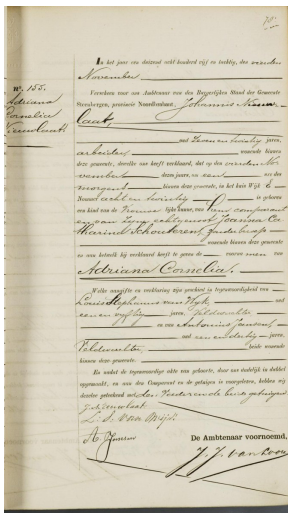 In het jaar een duizend acht honderd vijf en tachtig, den vierden
November
N° 155.
Adriana
Cornelia
Nieuwlaat.
Verscheen voor ons Ambtenaar van den Burgerlijken Stand der Gemeente
Steenbergen, provincie Noordbrabant, Johannis Nieuw-
laat,
oud zeven en twintig jaren,
arbeider, wonende binnen
deze gemeente, dewelke ons heeft verklaard, dat op den vierden No-
vember dezes jaars, ten een ure des
morgens, binnen deze gemeente, in het huis Wijk E
Nummer acht en twintig is geboren
een kind van de Vrouwelijke kunne, van hem comparant
en van zijne echtgenoot Joanna Ca-
tharina Schouteren, zonder beroep
wonende binnen deze gemeente
en aan hetwelk hij verklaard heeft te geven de voornamen van
Adriana Cornelia.
Welke aangifte en verklaring zijn geschied in tegenwoordigheid van
Louis Stephanus van Wijk, oud
een en vijftig jaren, Veldwachter
en van Antonius Jansen
oud een en dertig jaren,
Veldwachter, beide wonende
binnen deze gemeente.
En nadat de tegenwoordige akte van geboorte, door ons dadelijk in dubbel
opgemaakt, en aan den Comparant en de getuigen is voorgelezen, hebben wij
dezelve geteekend met den Vader en de beide getuigen
J. Nieuwlaat
L. S. van Wijk
A. Jansen
De Ambtenaar voornoemd,